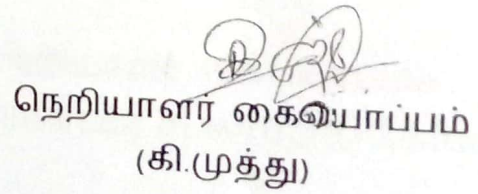 நெறியாளர் கையொப்பம்
(கி.முத்து)